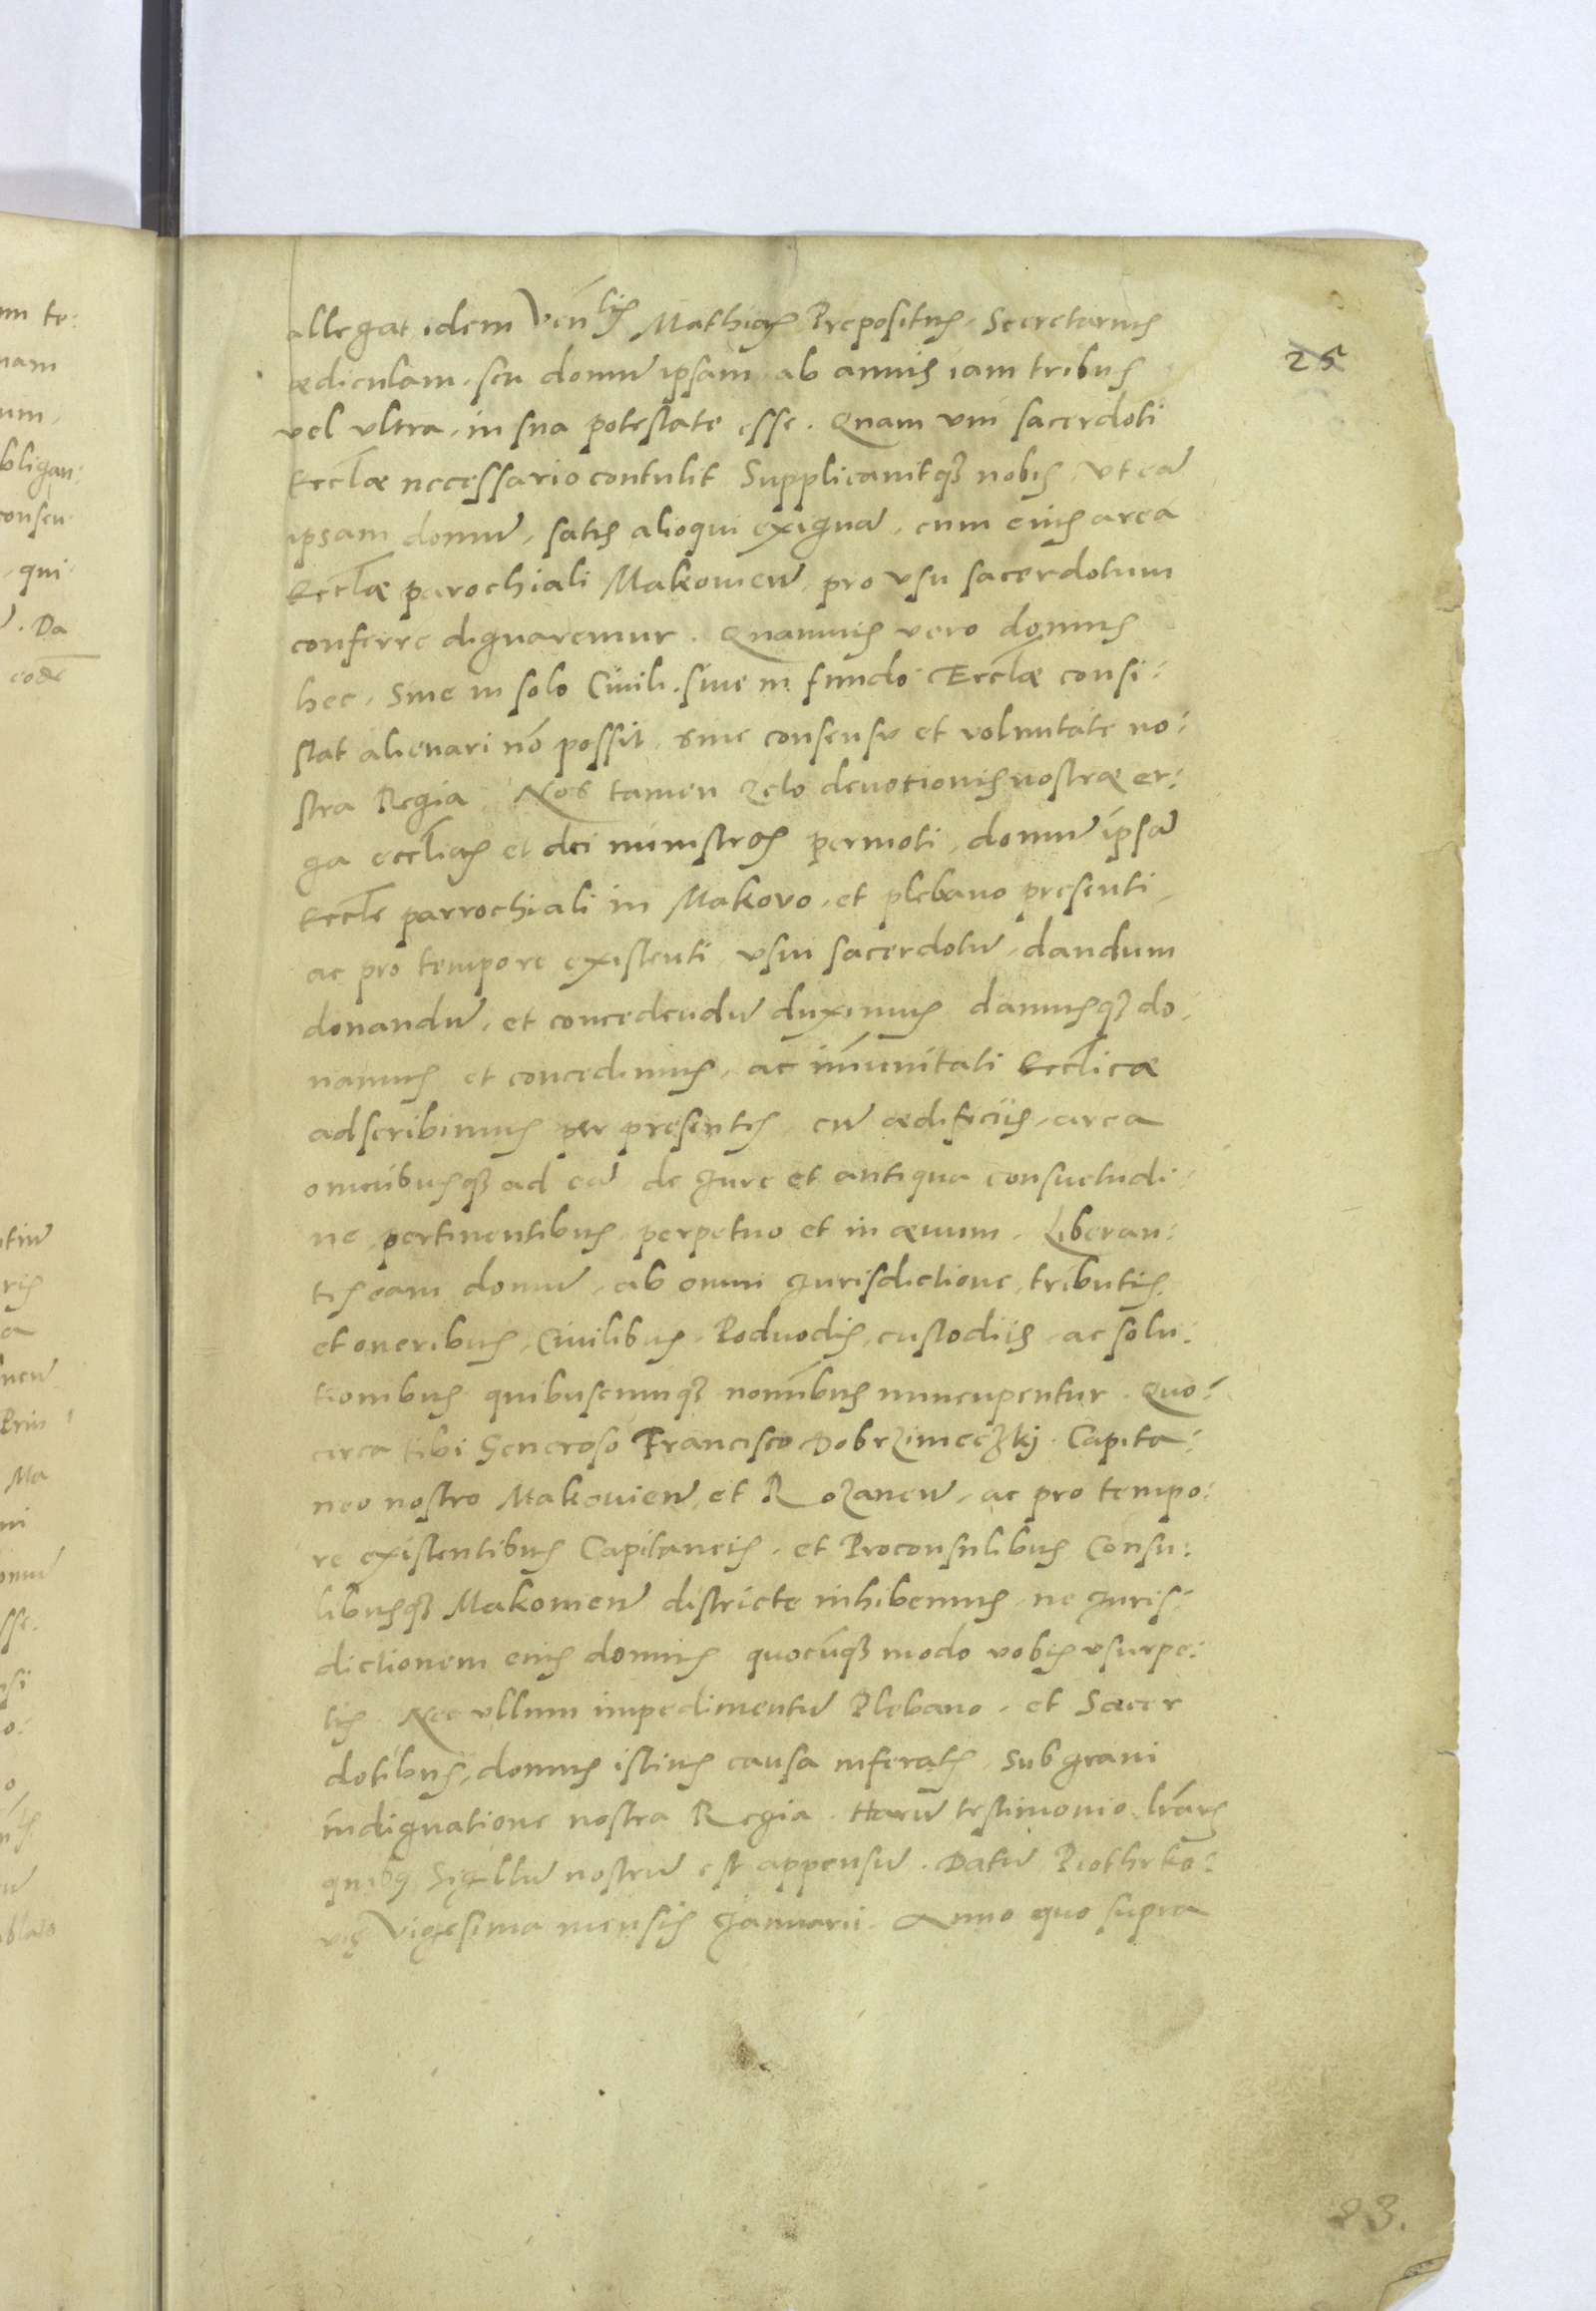 allegat idem Ven͞lis Mathias Prepositus, Secretarius
ædiculam, seu domū ipsam, ab annis iam tribus
vel ultra, in sua potestate esse. Quam uni sacerdoti
Eccl͞æ necessario contulit Supplicavitqȝ nobis, ut eā
ipsam domū, satis alioqui exiguā, cum eius area
Eccl͞æ parochiali Makowien̄, pro usu sacerdotum
conferre dignaremur. Quamvis vero domus
hec, Sive in solo Civili, sive in fundo Eccl͞æ consi:
stat alienari nō possit, sine consensu et voluntate no:
stra Regia. Nos tamen zelo devotionis nostræ er:
ga eccl͞ias et dei ministros permoti, domū ipsā
Eccl͞e parrochiali in Makovo, et plebano presenti,
ac pro tempore existenti, usui sacerdotū, dandum
donandū, et concedendū duximus damusqȝ do,
namus et concedimus, ac im̄unitati Eccl͞icæ
adscribimus per presentes, cū ædificiis, area
omnibusqȝ ad eā de Jure et antiqua consuetudi:
ne pertinentibus, perpetuo et in ævum. Liberan:
tes eam domū, ab omni Jurisdictione, tributis,
et oneribus, Civilibus, Podvodis, custodiis, ac solu:
tionibus quibuscumqȝ nom̄ibus nuncupentur. Quo:
circa tibi Generoso Francisco Dobrzimeczkj Capita:
neo nostro Makovien̄ et Rozanen̄, ac pro tempo:
re existentibus Capitaneis, et Proconsulibus Consu:
libusqȝ Makovien̄ districte inhibemus, ne Juris:
dictionem eius domus quocūqȝ modo vobis usurpe:
tis. Nec ullum impedimentū Plebano, et Sacer
dotibus, domus istius causa inferatis, sub gravi
indignatione nostra Regia. Harū testimonio lr͞arū
quibus Sigillū nostrū est appensū. Datū Piothrko:
viæ Vigesima mensis Januarii. Anno quo supra
25
23.